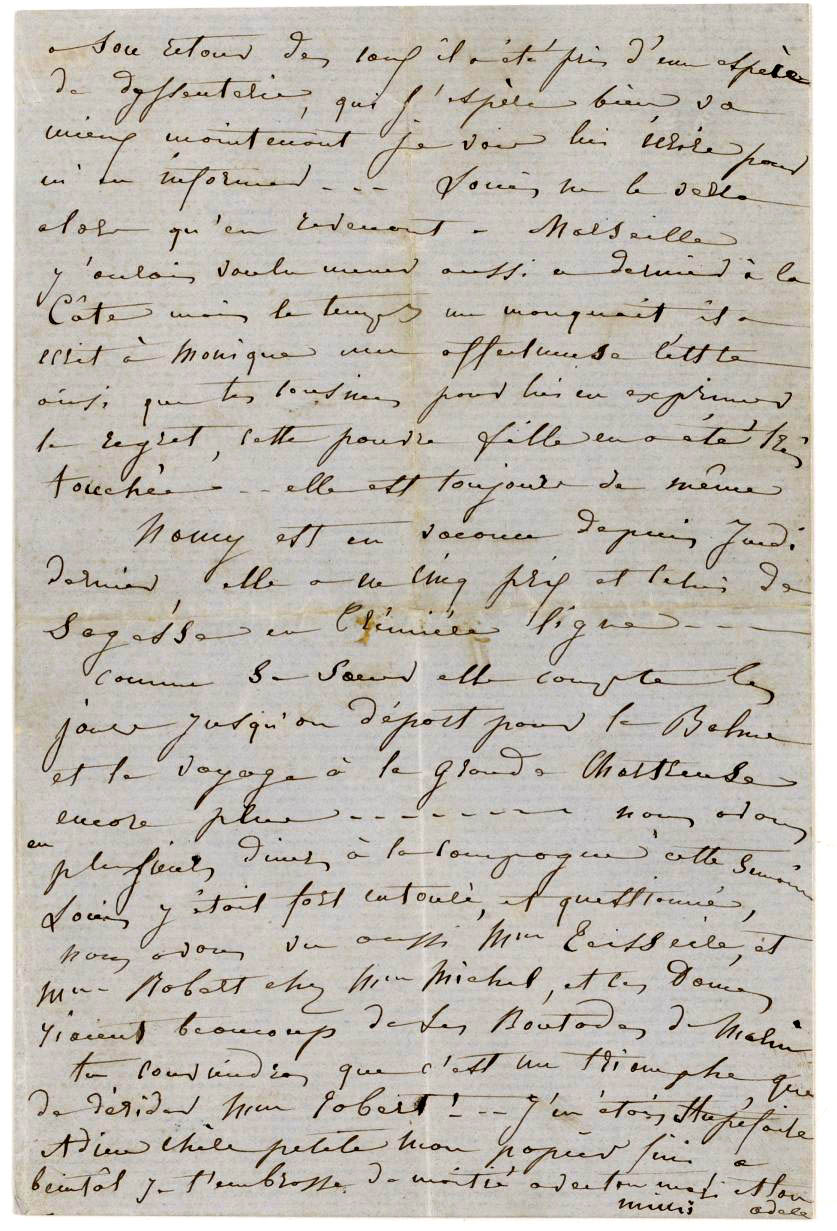 a son retour des courses il a été pris d'une espèce
de dyssenterie, qui j'espère bien va
mieux maintenant je vais lui écrire pour
m'en informer --- Louis ne le verra
alors qu'en revenant à Marseille
j'aurais voulu mener aussi ce dernier à la
Côte mais le temps me manquait il a
écrit à Monique une affectueuse lettre
ainsi que tes cousines pour lui en exprimer
le regret, cette pauvre fille en a été très
touchée -- elle est toujours de même
Nancy est en vacance depuis Jeudi
dernier, elle a eu cinq prix et celui de
Sagesse en première ligne ----
comme sa Sœur elle compte les
jours jusqu'au départ pour la Balme
et le voyage à la grande Chartreuse
encore plus ------- nous avons
eu plusieurs diners à la campagne cette semaine
Louis y était fort entouré, et questionné,
nous avons vu aussi Mme Teisseire, et
Mme Robert chez Mme Michel, et les Dames
riaient beaucoup de ses Boutades de Marin
tu conviendras que c'est un triomphe, que
de dérider Mme Robert! -- J'en étais stupéfaite
Adieu chère petite mon papier fini a
bientôt je t'embrasse de moitié avec ton mari et ton
mimi adele